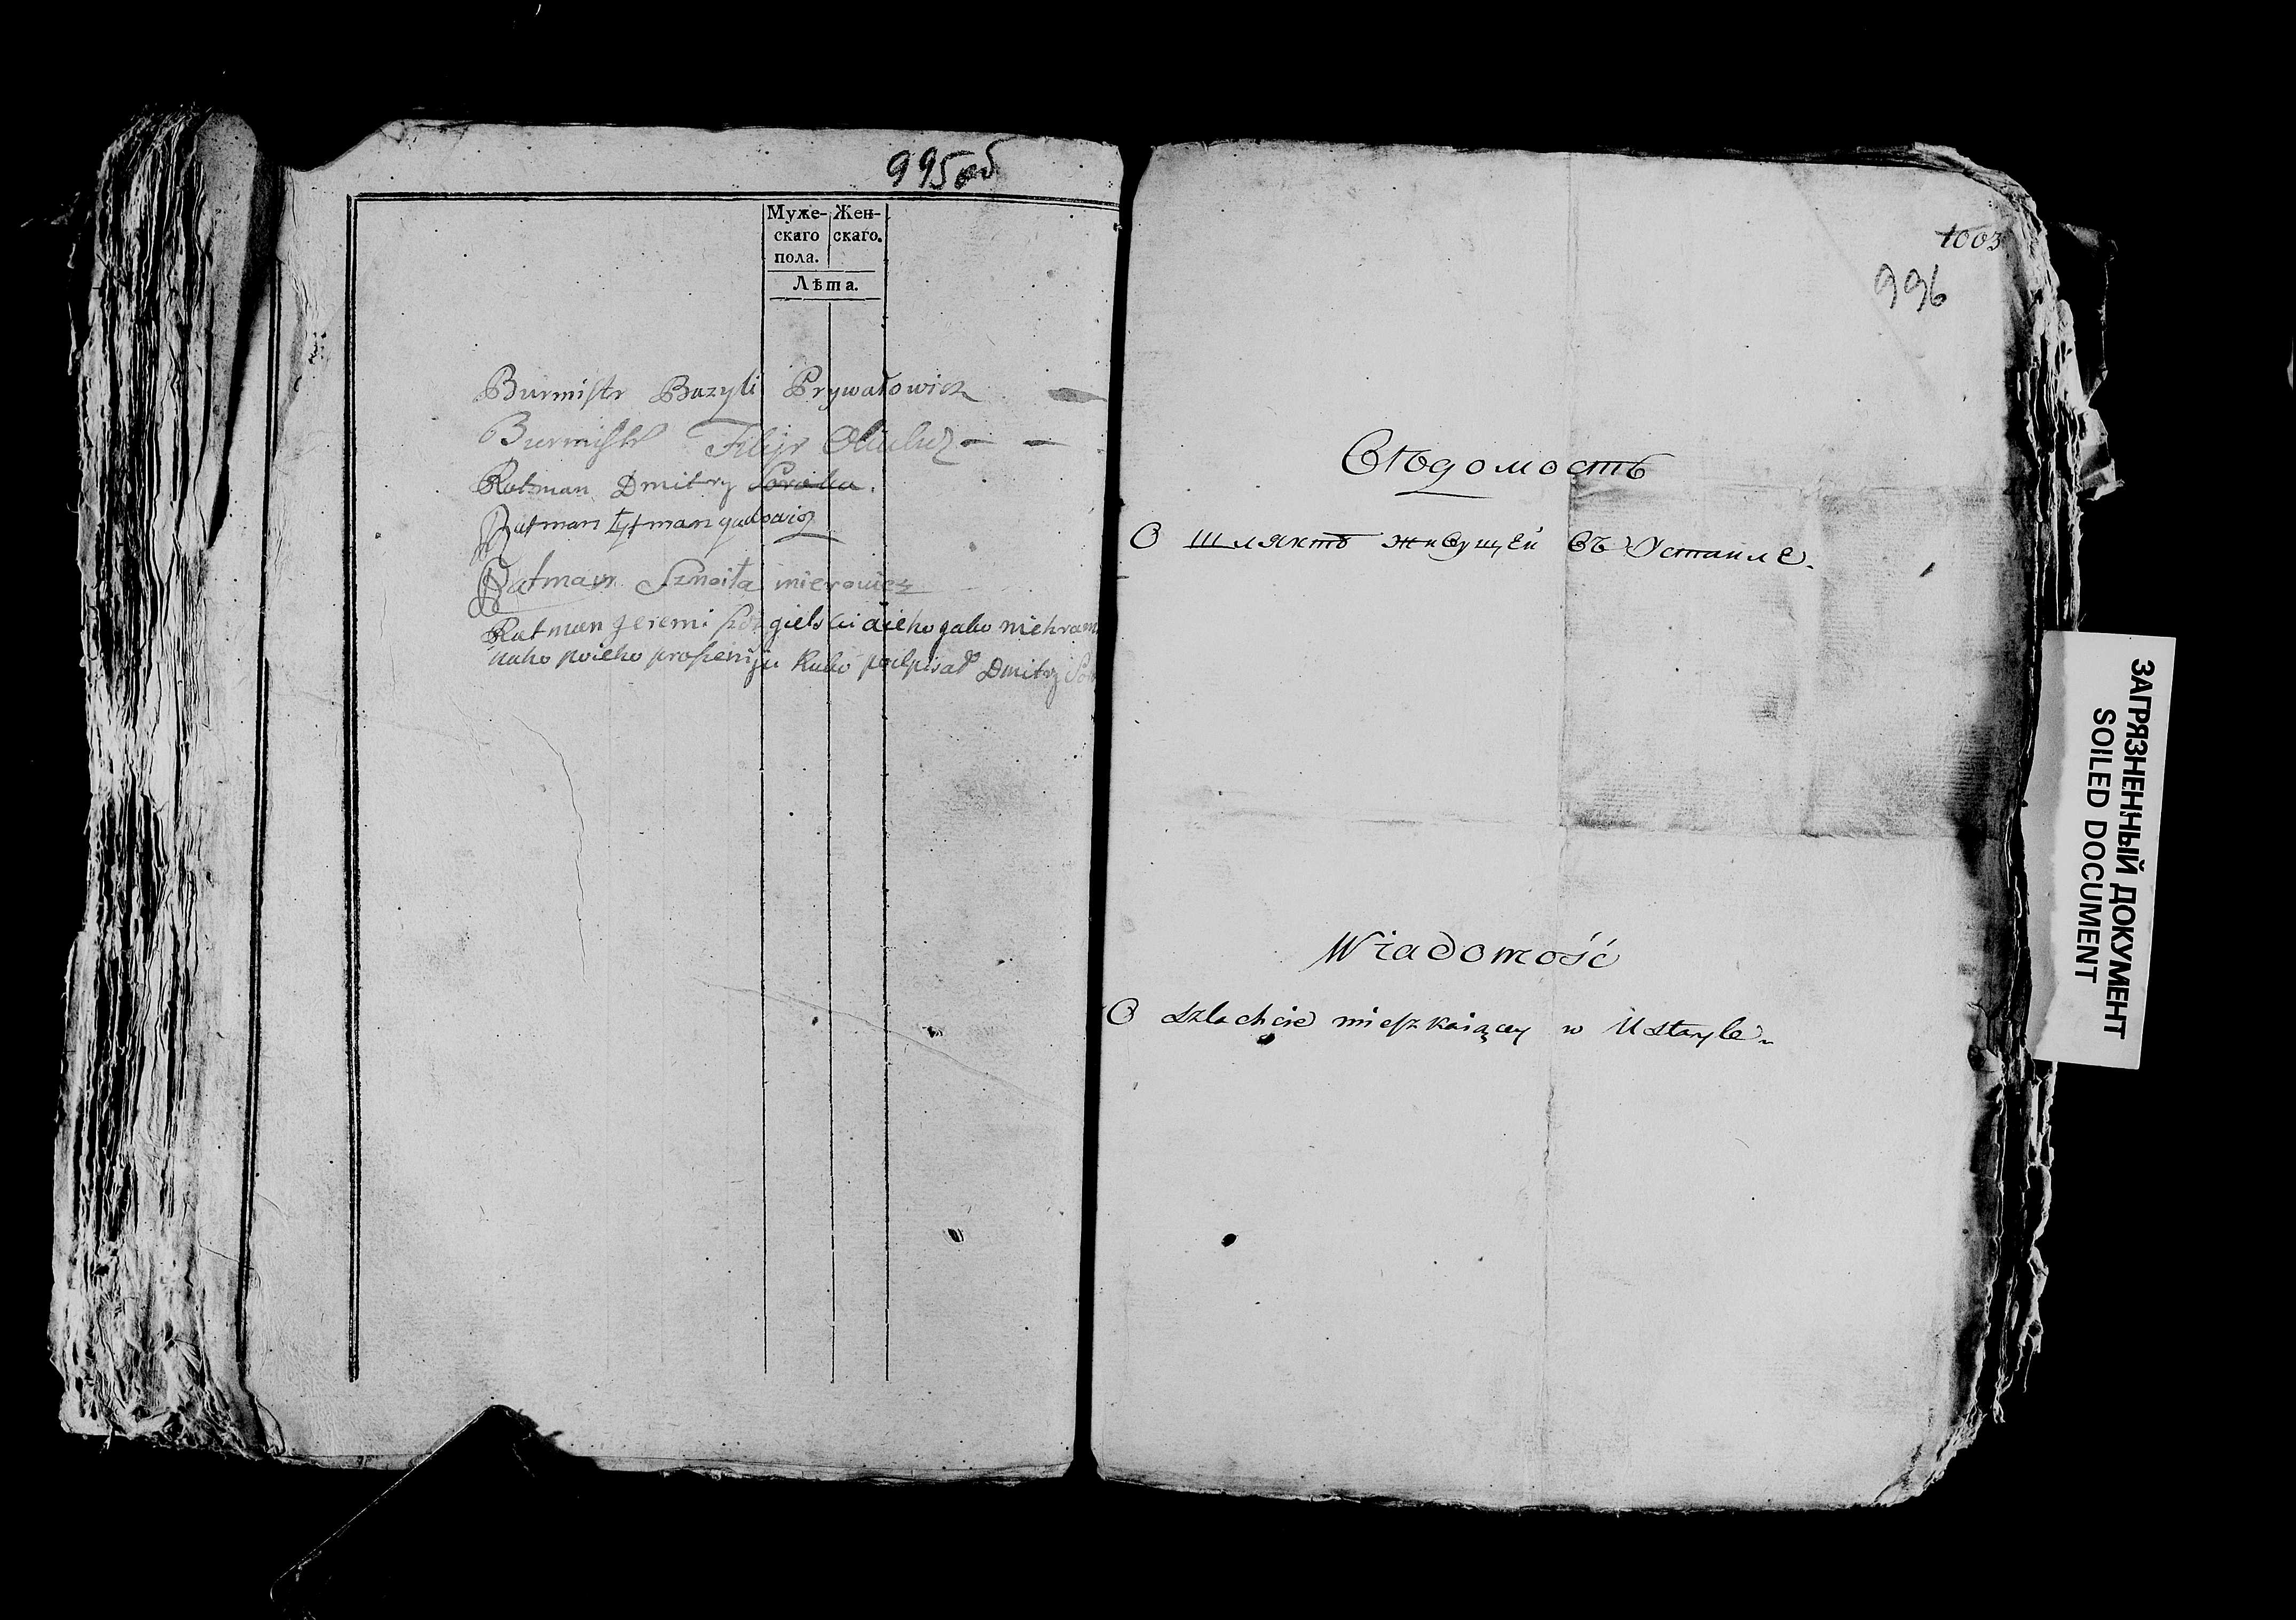 995об
Муже- Жен-
скаго скаго.
пола.
Лѣта.
Burmistr Bazyli Prywałowicz
Burmistr Filip
Ratman Dmitry Soroka.
Ratman
Ratman Szmoiła mierowicz
Ratman Jeremi aieho jako niehram
naho poieho proszeniju Ruku podpisał Dmitry
1003
996
Вѣдомость
О шляхтѣ живущей въ Устилле.
Wiadomość
O szlachcie mieszkaiącey w Ustyle
ЗАГРЯЗНЕННЫЙ ДОКУМЕНТ
SOILED DOCUMENT